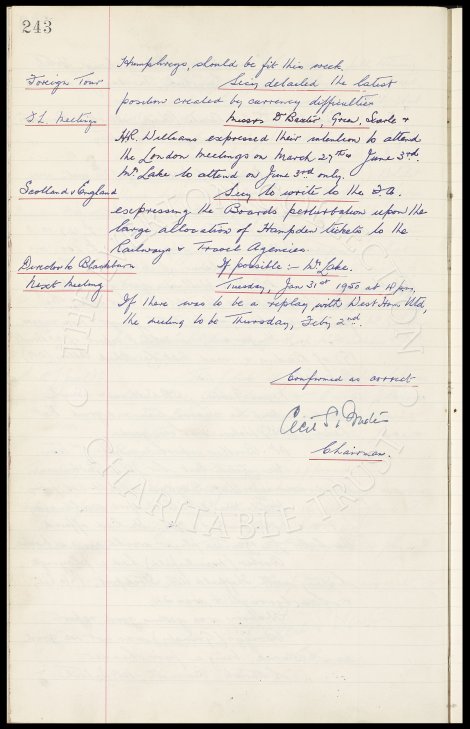 243
Humphreys, should be fit this week.
Foreign Tour Secy detailed the latest
position created by currency difficulties
F.L. Meetings Messrs D Baxter, Green, Searle &
H.R. Williams expressed their intention to attend
the London Meetings on March 27th & June 3rd.
Mr Lake to attend on June 3rd only.
Scotland v England Secy to write to the F.A.
expressing the Boards perturbation upon the
large allocation of Hampden tickets to the
Railways & Travel Agencies.
Director to Blackburn If possible :- Mr Lake.
Next Meeting Tuesday, Jan 31st 1950 at 4 pm.
If there was to be a replay with West Ham Utd,
the meeting to be Thursday, Feby 2nd.
Confirmed as correct
Cecil S.
Chairman.
CHARITABLE TRUST